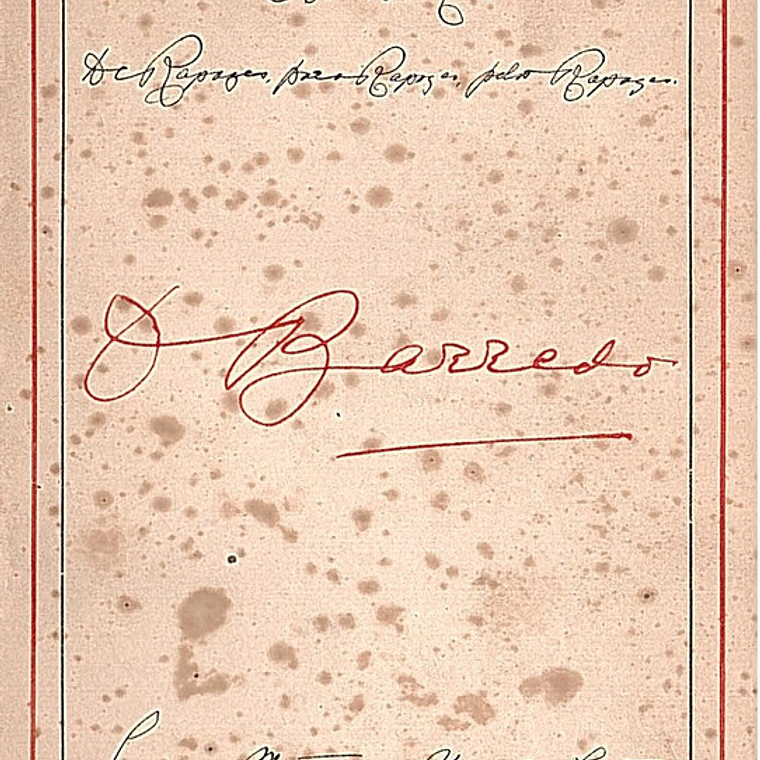 De Rapazes, para Rapazes, pelos Rapazes.
O Barredo